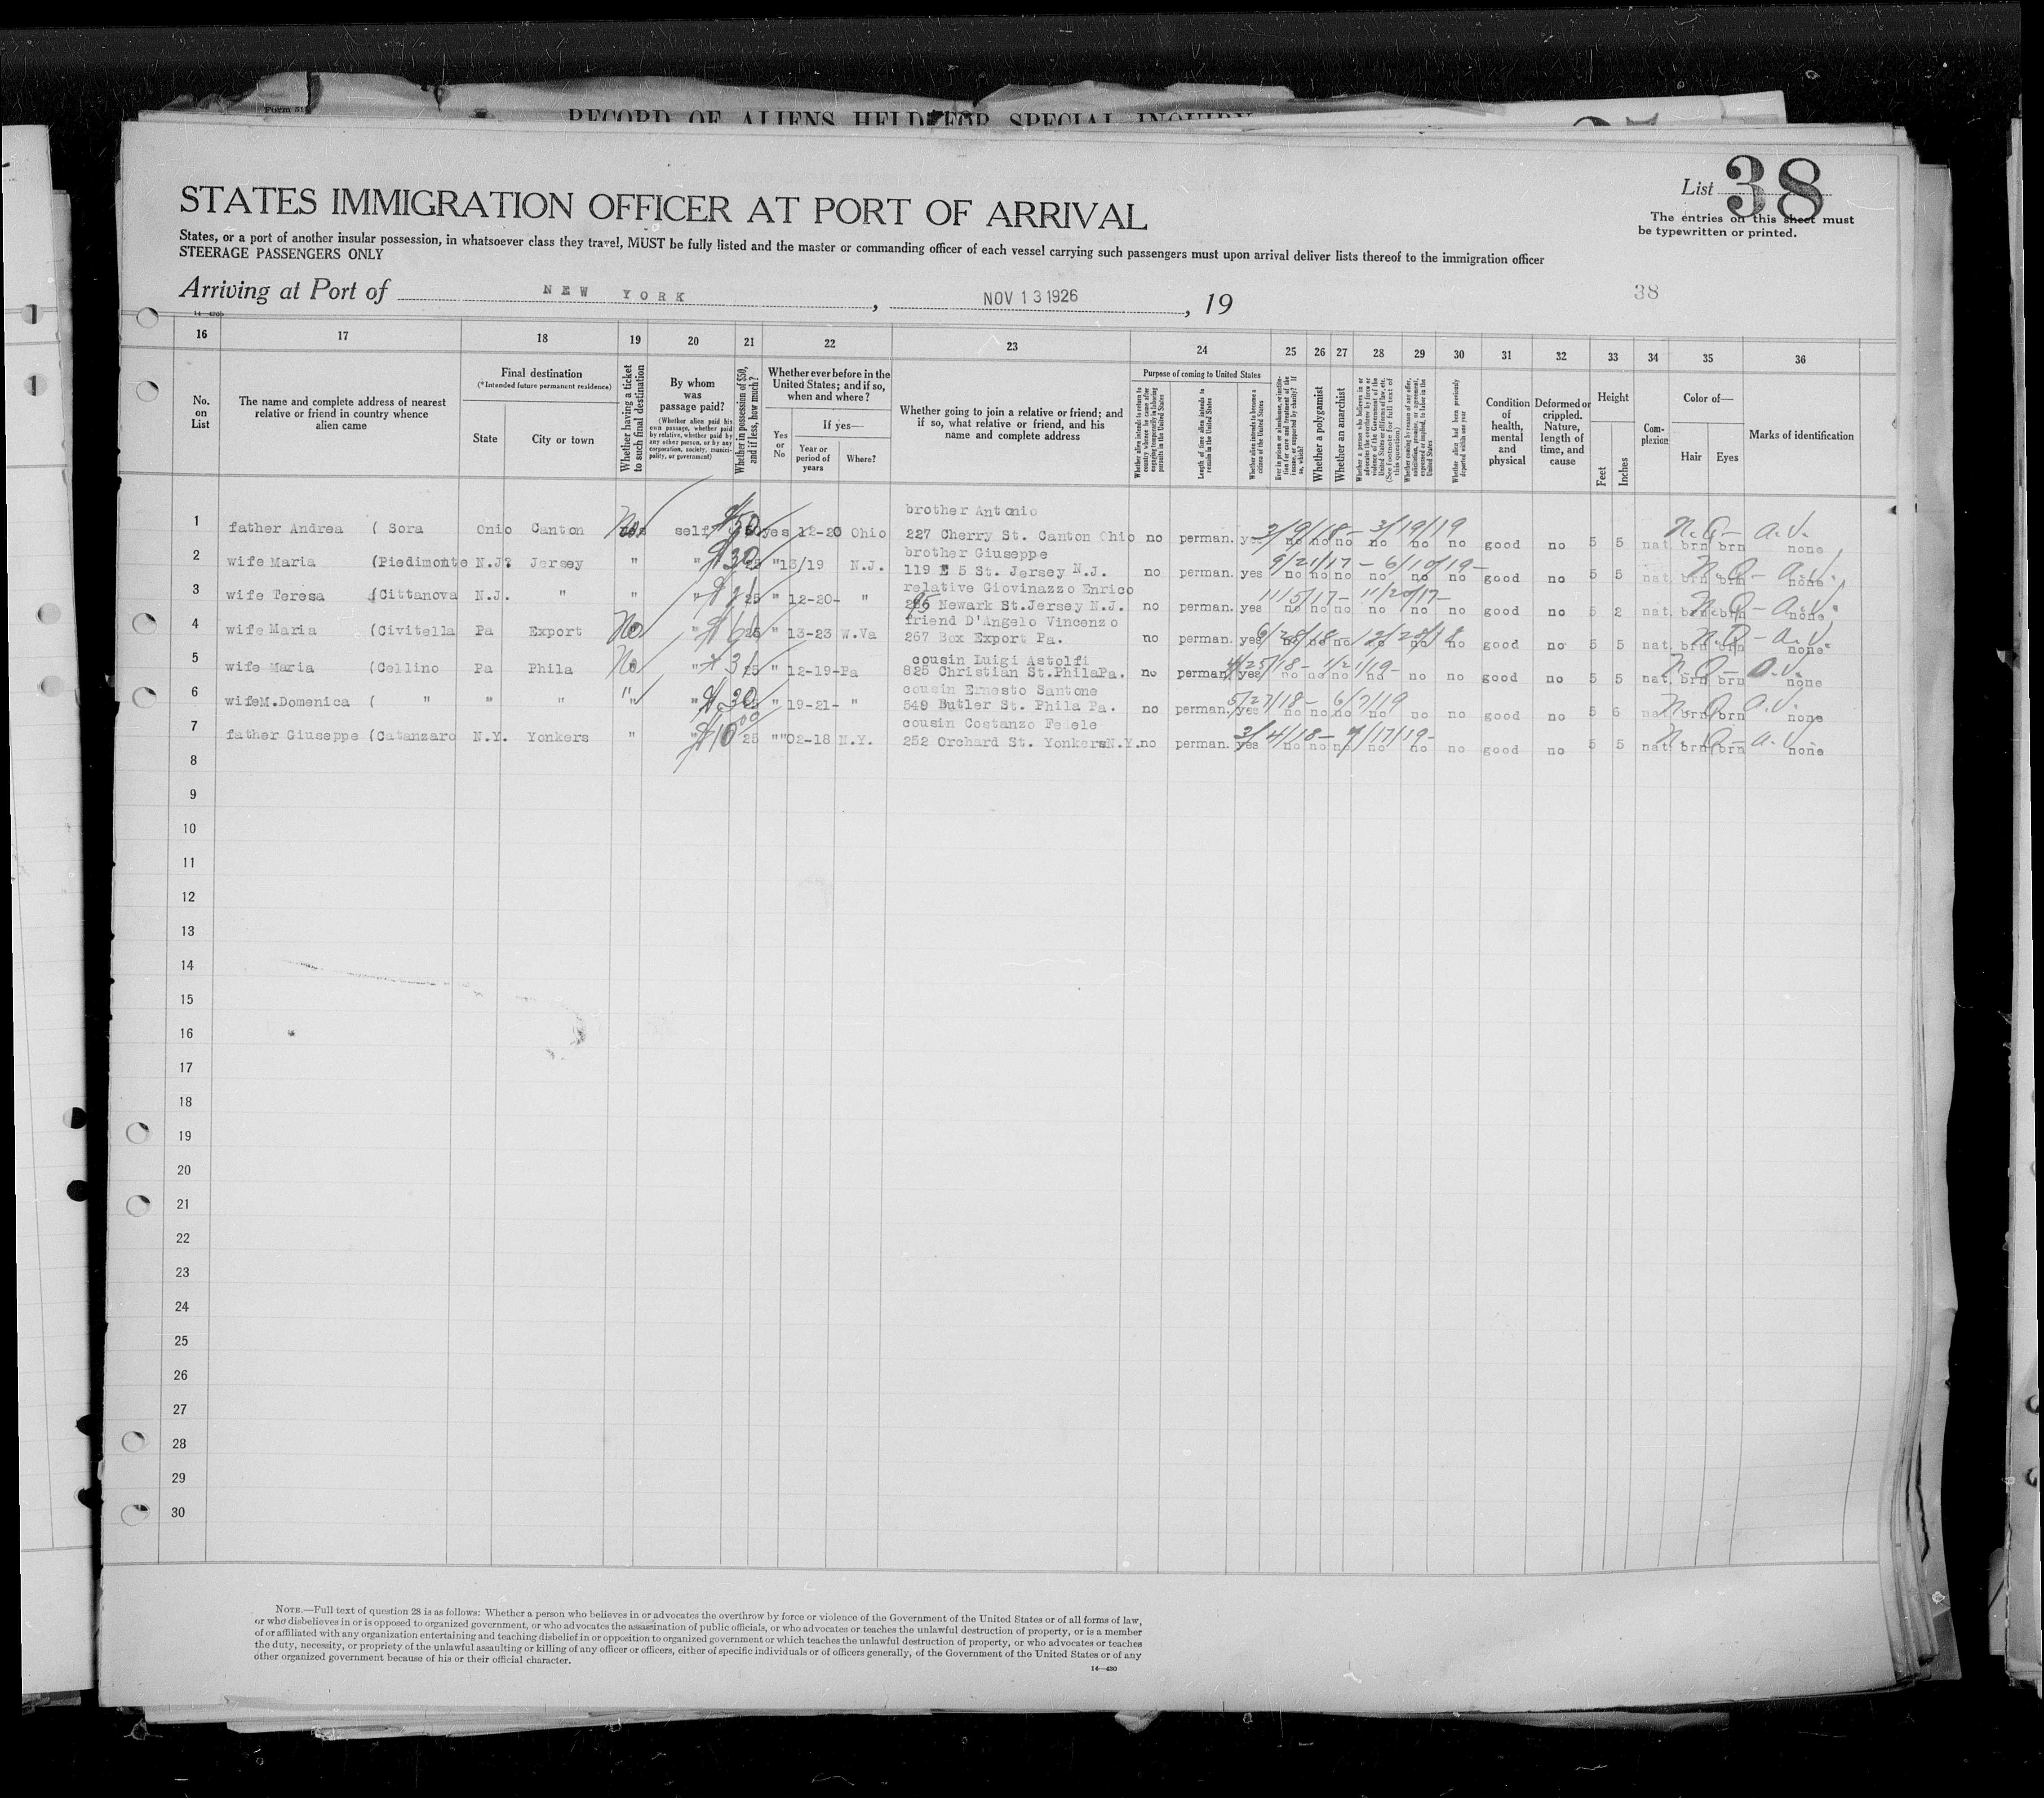 Form 51
RECORD OF ALIENS HELD FOR SPECIAL INQUIRY
List 38
The entries on this sheet must
be typewritten or printed.
STATES IMMIGRATION OFFICER AT PORT OF ARRIVAL
States, or a port of another insular possession, in whatsoever class they travel, MUST be fully listed and the master or commanding officer of each vessel carrying such passengers must upon arrival deliver lists thereof to the immigration officer
STEERAGE PASSENGERS ONLY
Arriving at Port of NEW YORK, NOV 13 1926, 19
38
16 17 18 19 20 21 22 23 24 25 26 27 28 29 30 31 32 33 34 35 36
No. on List
The name and complete address of nearest relative or friend in country whence alien came
Final destination
(*Intended future permanent residence)
State
City or town
Whether having a ticket to such final destination
By whom was passage paid?
(Whether alien paid his own passage, whether paid by relative, whether paid by any other person, or by any corporation, society, municipality, or government)
Whether in possession of $50, and if less, how much?
Whether ever before in the United States; and if so, when and where?
Yes or No
If yes—
Year or period of years
Where?
Whether going to join a relative or friend; and if so, what relative or friend, and his name and complete address
Purpose of coming to United States
Whether alien intends to return to country whence he came after engaging temporarily in laboring pursuits in the United States
Length of time alien intends to remain in the United States
Whether alien intends to become a citizen of the United States
Ever in prison or almshouse, or institution for care and treatment of the insane, or supported by charity? If so, which?
Whether a polygamist
Whether an anarchist
Whether a person who believes in or advocates the overthrow by force or violence of the Government of the United States or all forms of law, etc. (See footnote for full text of this question)
Whether coming by reason of any offer, solicitation, promise, or agreement, expressed or implied, to labor in the United States
Whether alien had been previously deported within one year
Condition of health, mental and physical
Deformed or crippled. Nature, length of time, and cause
Height
Feet
Inches
Complexion
Color of—
Hair
Eyes
Marks of identification
brother Antonio
1 father Andrea ( Sora Onio Canton No self $50 yes 12-20 Ohio 227 Cherry St. Canton Ohio no perman. yes 3/9/18 - 3/19/19 no no no no no no good no 5 5 nat. brn brn none
brother Giuseppe
2 wife Maria (Piedimonte N.J. Jersey " " $30 25 " 13/19 N.J. 119 E 5 St. Jersey N.J. no perman. yes 9/21/17 - 6/10/19 - no no no no no no good no 5 5 nat. brn brn none
relative Giovinazzo Enrico
3 wife Teresa (Cittanova N.J. " " " 25 " 12-20- " Newark St.Jersey N.J. no perman. yes 11/5/17 - 11/20/17 - no no no no no no good no 5 2 nat. brn brn none
friend D'Angelo Vincenzo
4 wife Maria (Civitella Pa Export No " 25 " 13-23 W.Va 267 Box Export Pa. no perman. yes no no no no no no good no 5 5 nat. brn brn none
cousin Luigi Astolfi
5 wife Maria (Cellino Pa Phila No " 25 " 12-19-Pa 825 Christian St.PhilaPa. no perman. yes no no no no no no good no 5 5 nat. brn brn none
cousin Ernesto Santone
6 wifeM.Domenica ( " " " " " $30 25 " 19-21- " 549 Butler St. Phila Pa. no perman. yes 5/27/18 - 6/7/19 no no no no no no good no 5 6 nat. brn brn none
cousin Costanzo Fedele
7 father Giuseppe (Catanzaro N.Y. Yonkers " " $10 00 25 ""02-18 N.Y. 252 Orchard St. Yonkers N.Y. no perman. yes no no no no no no good no 5 5 nat. brn brn none
8
9
10
11
12
13
14
15
16
17
18
19
20
21
22
23
24
25
26
27
28
29
30
NOTE.—Full text of question 28 is as follows: Whether a person who believes in or advocates the overthrow by force or violence of the Government of the United States or of all forms of law,
or who disbelieves in or is opposed to organized government, or who advocates the assassination of public officials, or who advocates or teaches the unlawful destruction of property, or is a member
of or affiliated with any organization entertaining and teaching disbelief in or opposition to organized government or which teaches the unlawful destruction of property, or who advocates or teaches
the duty, necessity, or propriety of the unlawful assaulting or killing of any officer or officers, either of specific individuals or of officers generally, of the Government of the United States or of any
other organized government because of his or their official character.
14—430